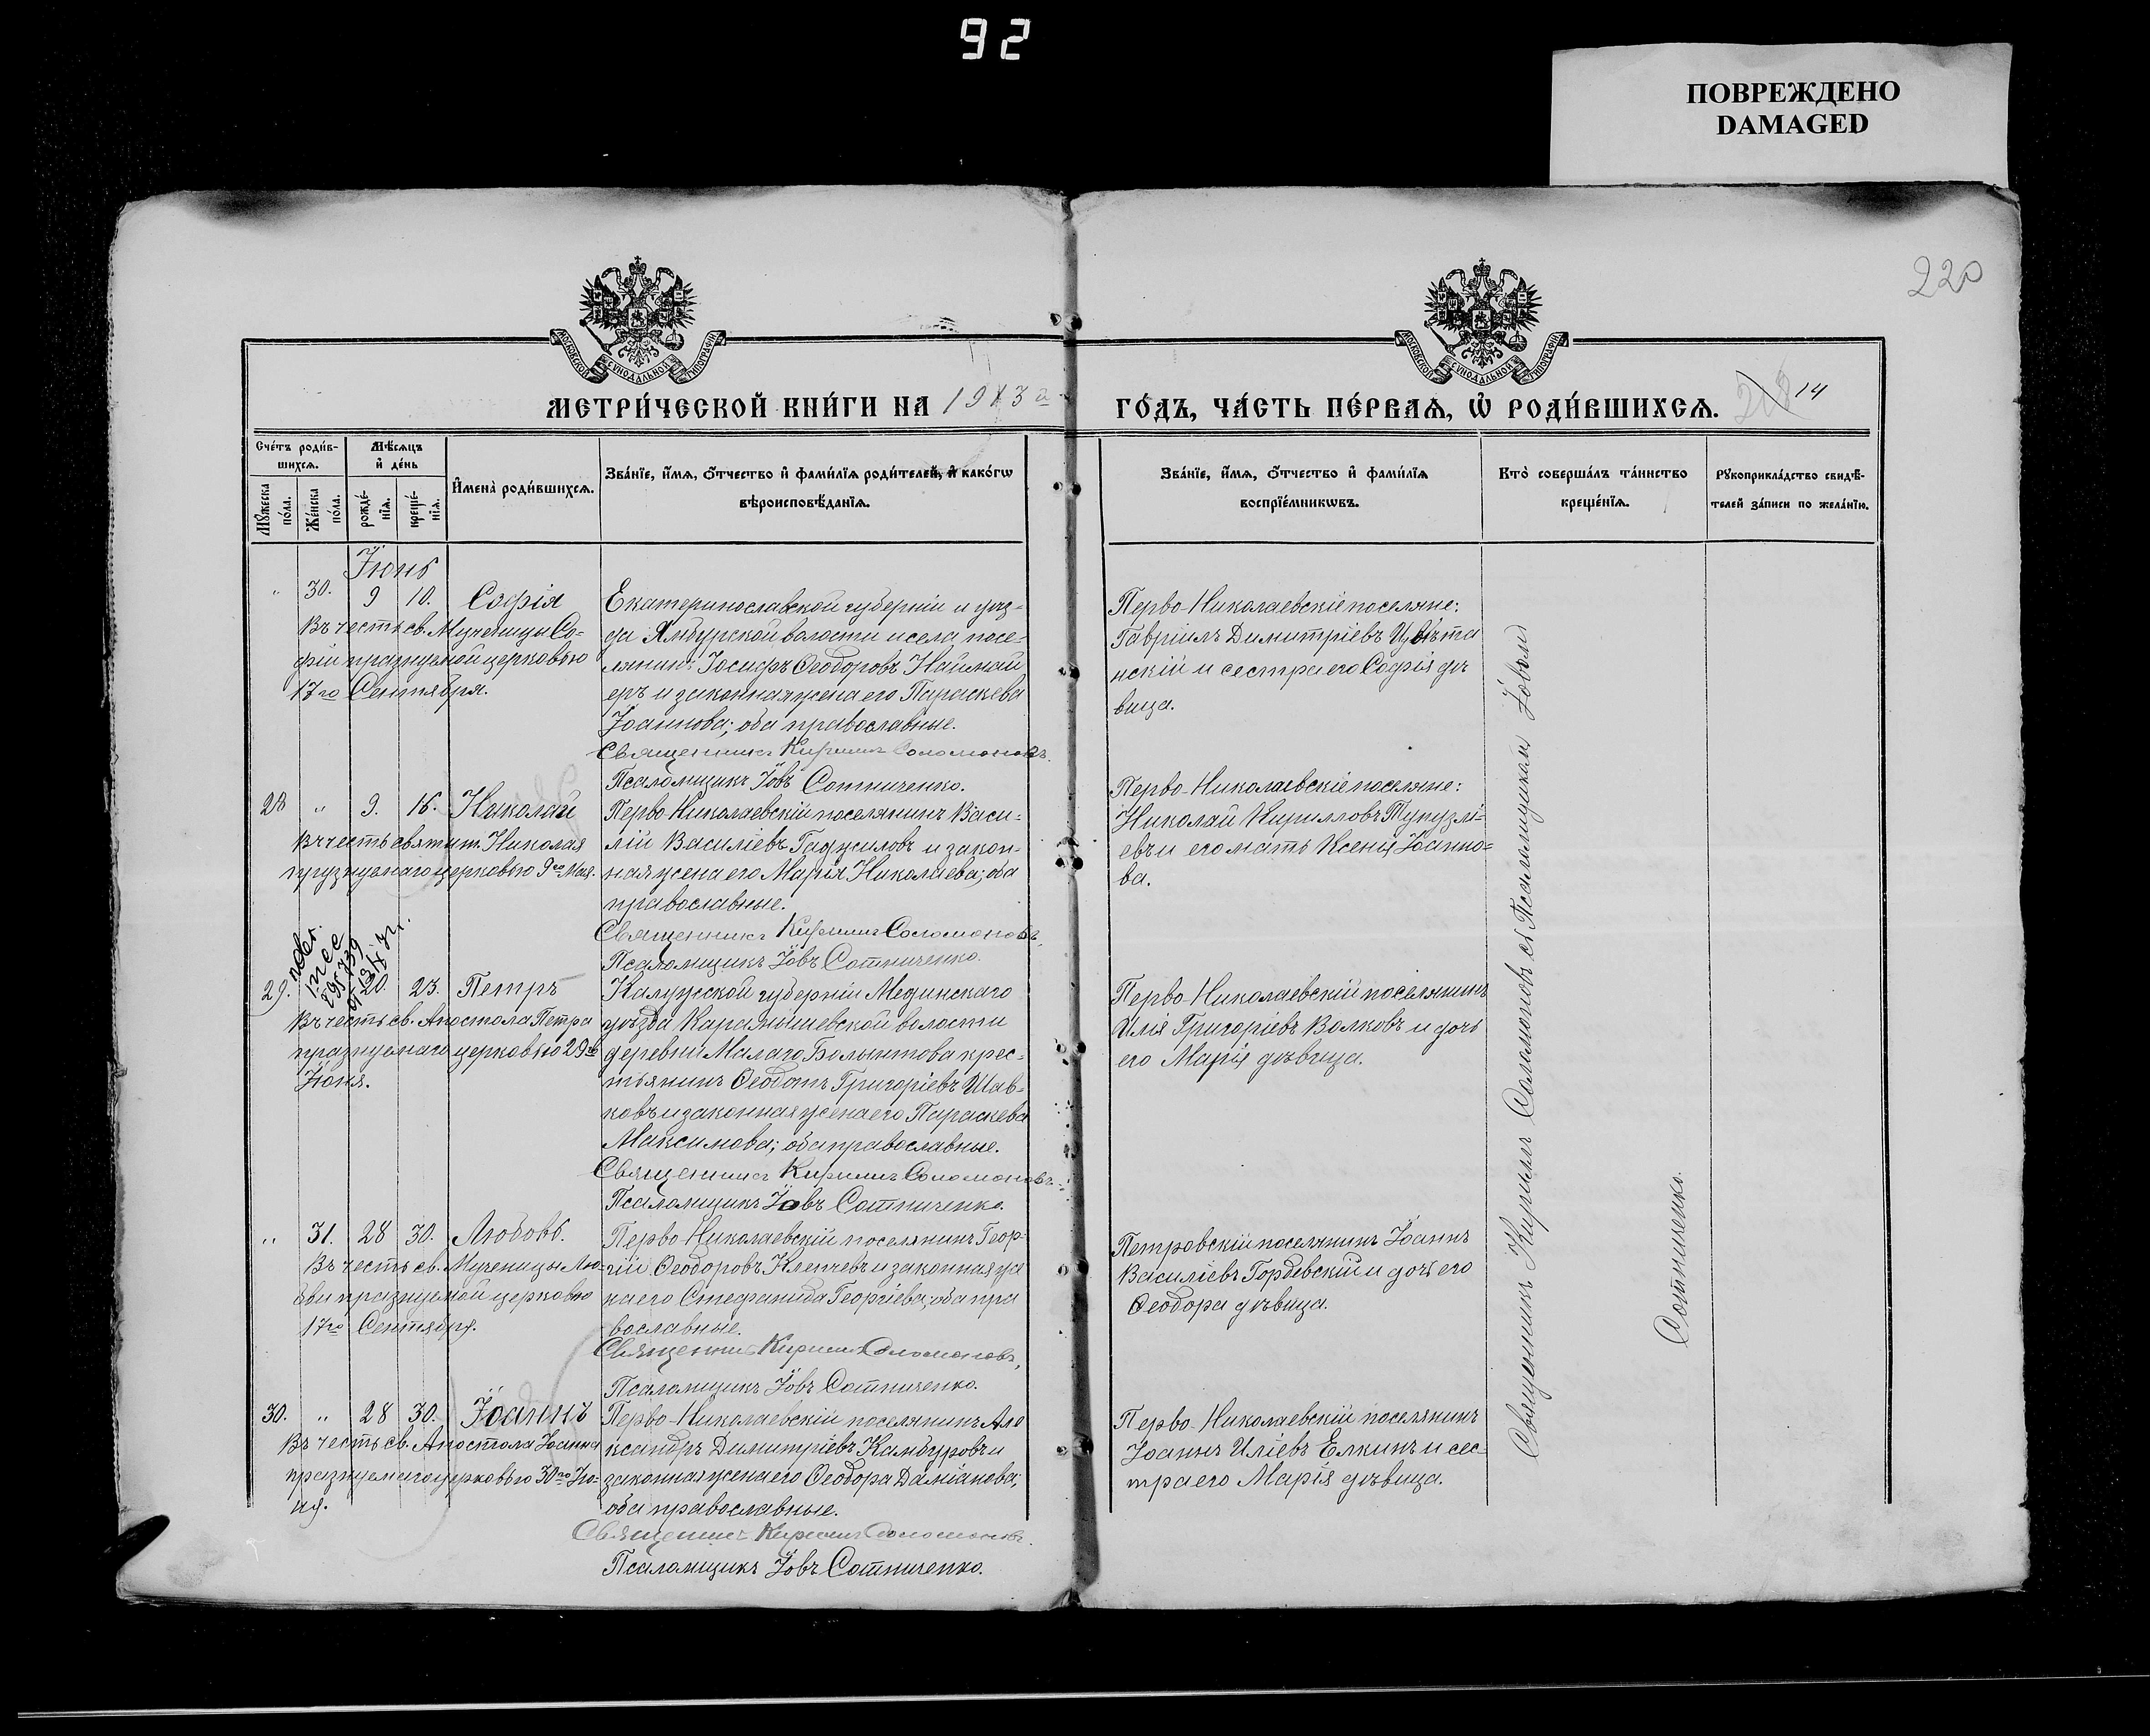 92
ПОВРЕЖДЕНО
DAMAGED
220
МОСКОВСКОЙ СѴНОДАЛЬНОЙ ТИПОГРАФІИ
МОСКОВСКОЙ СѴНОДАЛЬНОЙ ТИПОГРАФІИ
МЕТРИ́ЧЕСКОЙ КНИ́ГИ НА 1913 й
ГО́ДЪ, ЧА́СТЬ ПЕ́РВАѦ, Ѡ҆ РОДИ́ВШИХСѦ. 14
Сче́тъ роди́в-
шихсѧ.
Мѣ́сѧцъ
и҆ де́нь
Мꙋ́жеска
по́ла.
Же́нска
по́ла.
рожде́-
нїѧ.
креще́-
нїѧ.
И҆мена̀ роди́вшихсѧ.
Зва́нїе, и҆́мѧ, ѻ҆́тчество и҆ фами́лїѧ роди́телей, и҆ како́гѡ
вѣроисповѣ́данїѧ.
Зва́нїе, и҆́мѧ, ѻ҆́тчество и҆ фами́лїѧ
воспрїе́мникѡвъ.
Кто̀ соверша́лъ та́инство
креще́нїѧ.
Рꙋкоприкла́дство свидѣ́-
телей за́писи по жела́нїю.
Іюнь
" 30. 9 10. Софія
Въ честь св. Мученицы Со-
фіи празнуемой церковью
17го Сентября.
Екатеринославской губерніи и уѣз-
да Ямбурской волости и села, посе-
лянинъ Іосифъ Ѳеодоровъ Наймай
еръ и законная жена его Параскева
Іоаннова; оба православные.
Священникъ Кириллъ Соломоновъ.
Псаломщикъ Іовъ Сотниченко.
Перво-Николаевскіе поселяне:
Гавріилъ Димитріевъ Цвѣта
нскій и сестра его Софія дѣ
вица.
28 " 9. 16. Николай
Въ честь святит. Николая
празнуемаго церковью 9го Мая.
Перво-Николаевскій поселянинъ Васи-
лій Василіевъ Гаджиловъ и закон-
ная жена его Марія Николаева; оба
православные.
Священникъ Кириллъ Соломоновъ,
Псаломщикъ Іовъ Сотниченко.
Перво-Николаевскіе поселяне:
Николай Кирилловъ Тукузлі-
евъ и его мать Ксенія Іоанно-
ва.
29. 20. 23. Петръ
Въ честь св. Апостола Петра
празнуемаго церковью 29го
Іюня.
Калужской губерніи Мединскаго
уѣзда Карамышевской волости
деревни Малаго Болынтова крес-
тьянинъ Ѳеодотъ Григоріевъ Шав-
ковъ и законная жена его Параскева
Максимова; оба православные.
Священникъ Кириллъ Соломоновъ.
Псаломщикъ Іовъ Сотниченко.
Перво-Николаевскій поселянинъ
Илія Григоріевъ Волковъ и дочь
его Марія дѣвица.
" 31. 28 30. Любовь.
Въ честь св. Мученицы Лю-
бви празнуемой церковью
17го Сентября.
Перво-Николаевскій поселянинъ Геор-
гій Ѳеодоровъ Кленчевъ и законная же
на его Стефанида Георгіева; оба пра
вославные.
Священникъ Кириллъ Соломоновъ,
Псаломщикъ Іовъ Сотниченко.
Петровскій поселянинъ Іоаннъ
Василіевъ Гордевскій и дочь его
Ѳеодора дѣвица.
30. " 28 30. Іоаннъ
Въ честь св. Апостола Іоанна
празнуемаго церковью 30го Ію-
ня.
Перво-Николаевскій поселянинъ Але
ксандръ Димитріевъ Камбуровъ и
законная жена его Ѳеодора Даміанова;
оба православные.
Священникъ Кириллъ Соломоновъ.
Псаломщикъ Іовъ Сотниченко.
Перво-Николаевскій поселянинъ
Іоаннъ Иліевъ Елкинъ и сес-
тра его Марія дѣвица.
Священникъ Кириллъ Соломоновъ съ Псаломщикомъ Іовомъ
Сотниченко.